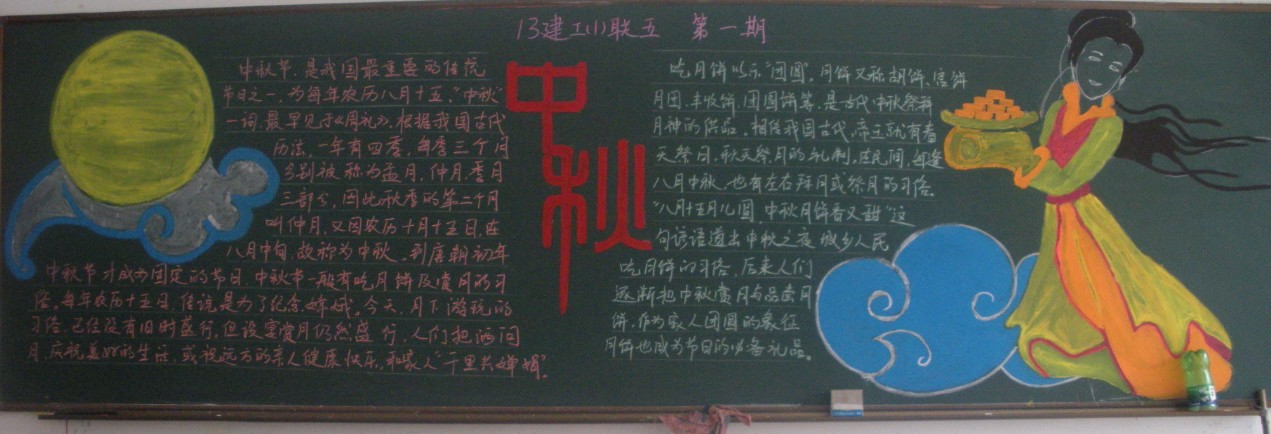 13建工(1)联五 第一期
中秋节,是我国最重要的传统
节日之一,为每年农历八月十五,"中秋"
一词,最早见于《周礼》,根据我国古代
历法,一年有四季,每季三个月
分别被称为孟月、仲月、季月
三部分,因此秋季的第二个月
叫仲月,又因农历十月十五日,在
八月中旬,故称为中秋、到唐朝初年
中秋节才成为固定的节日,中秋节一般有吃月饼及赏月的习
俗。每年农历十五日,传说是为了纪念嫦娥。今天,月下游玩的
习俗,已经没有旧时盛行,但设宴赏月仍然盛行,人们把酒问
月,庆祝美好的生活,或祝远方的亲人健康快乐,和家人"千里共婵娟"。
中秋
吃月饼以示"团圆",月饼又称胡饼、宫饼
月团、丰收饼、团圆饼等,是古代中秋祭拜
月神的供品。相传我国古代,帝王就有春
天祭日,秋天祭月的礼制,在民间,每逢
八月中秋,也有左右拜月或祭月的习俗。
"八月十五月儿圆,中秋月饼香又甜"这
句谚语道出中秋之夜城乡人民
吃月饼的习俗,后来人们
逐渐把中秋赏月与品尝月
饼,作为家人团圆的象征
月饼也成为节日的必备礼品。